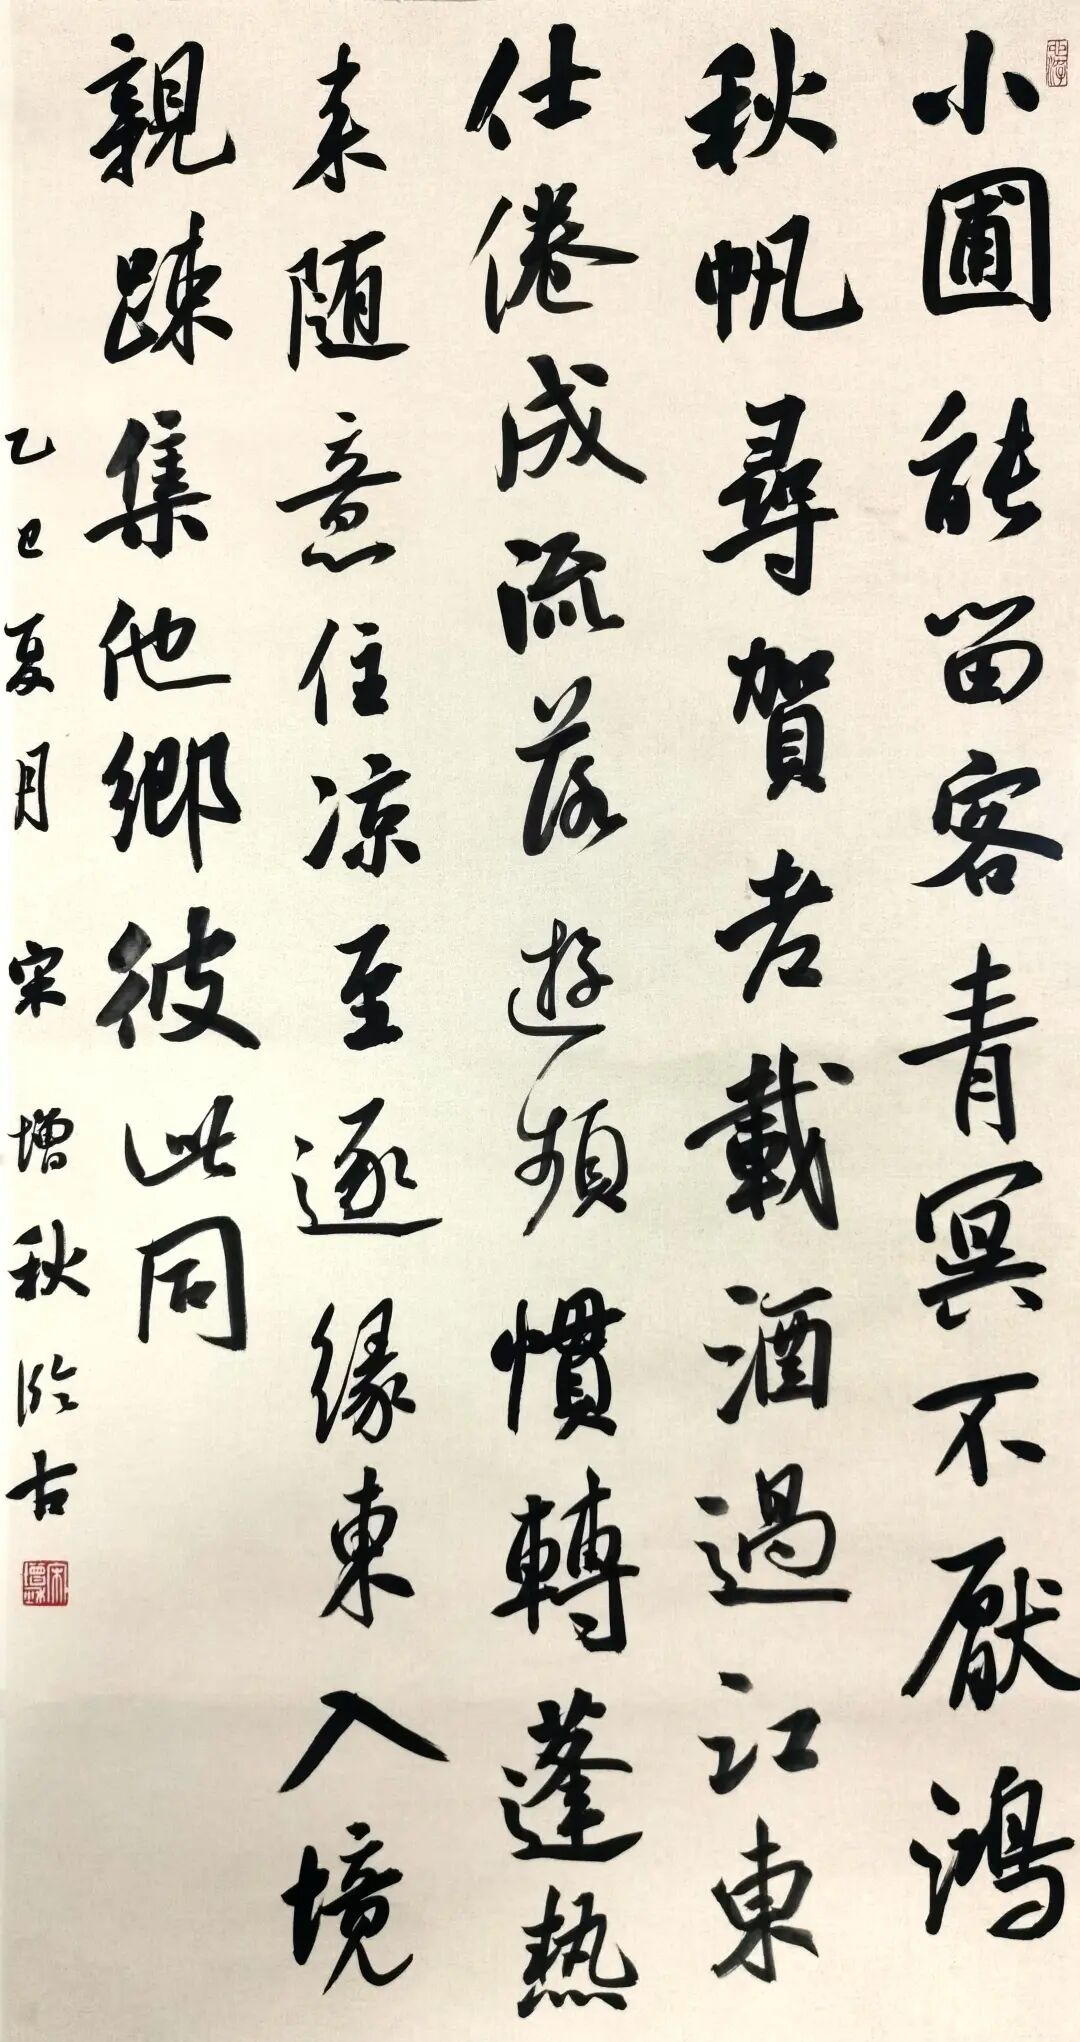 小圃能留客青冥不厭鴻
秋帆尋賀老載酒過江東
仕倦成流落遊頻慣轉蓬熱
来随意住凉至逐緣東入境
親踈集他鄉彼此同
乙巳夏月宋增秋临古